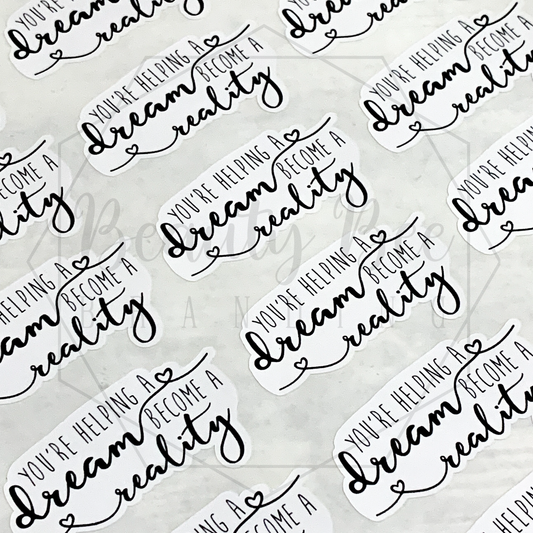 YOU'RE HELPING A
dream BECOME A
reality
YOU'RE HELPING A
dream BECOME A
reality
YOU'RE HELPING A
dream BECOME A
reality
YOU'RE HELPING A
dream BECOME A
reality
YOU'RE HELPING A
dream BECOME A
reality
YOU'RE HELPING A
dream BECOME A
reality
YOU'RE HELPING A
dream BECOME A
reality
YOU'RE HELPING A
dream BECOME A
reality
Beauty Bee
BRANDING